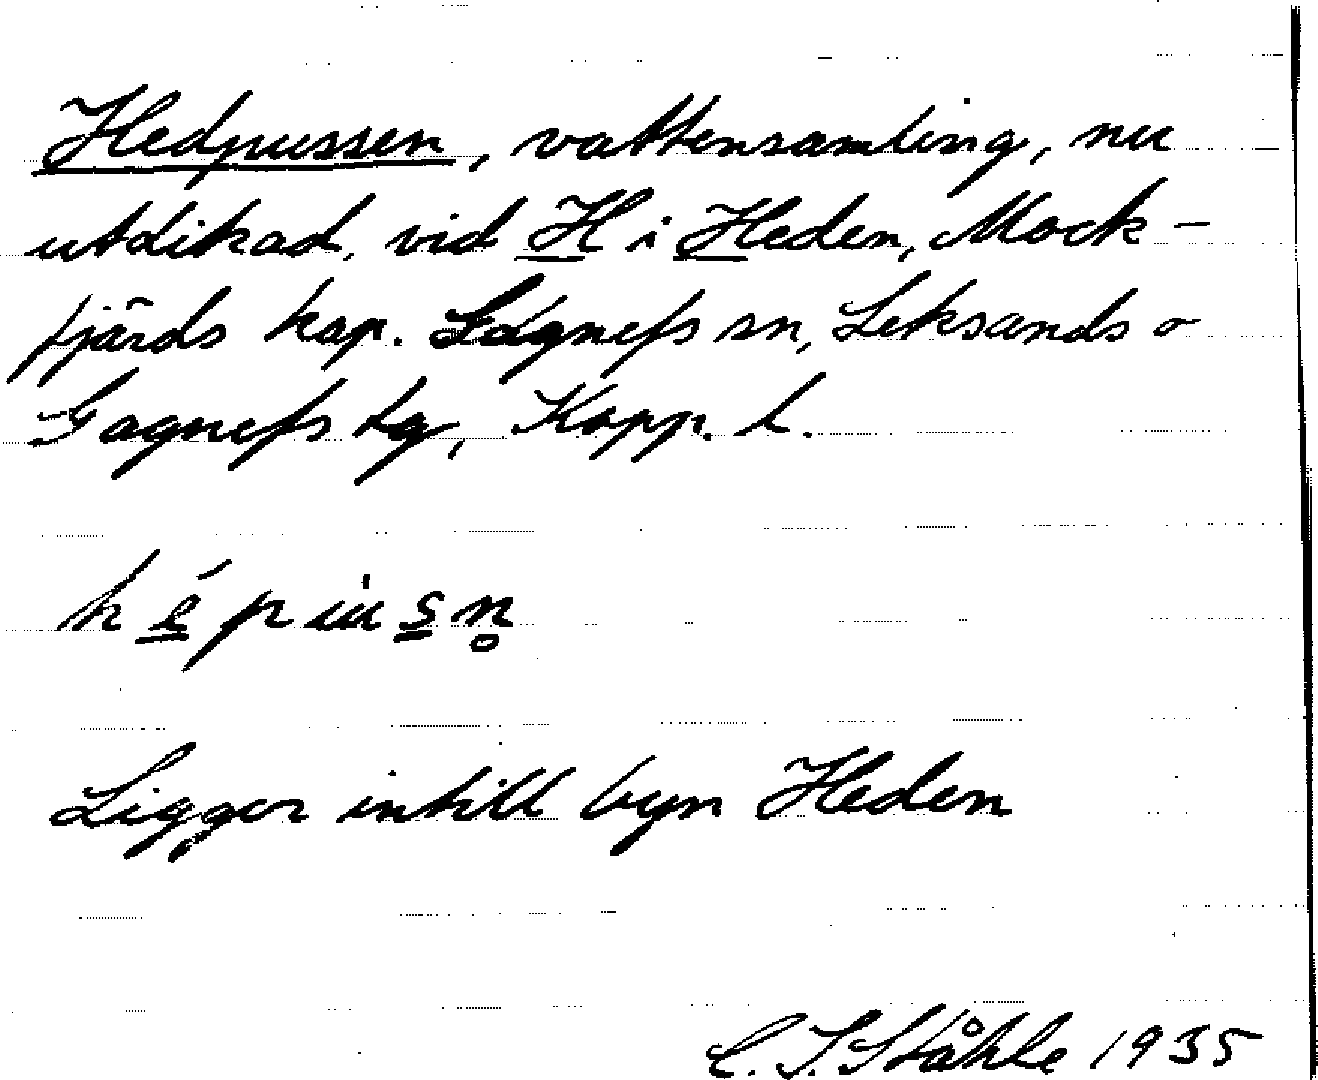 Hedpussen, vattensamling, nu
utdikad, vid H i Heden, Mock-
fjärds kap. Gagnefs sn, Leksands o
Gagnefs tg, Kopp. l.
Ligger intill byn Heden
C. I. Ståhle 1935